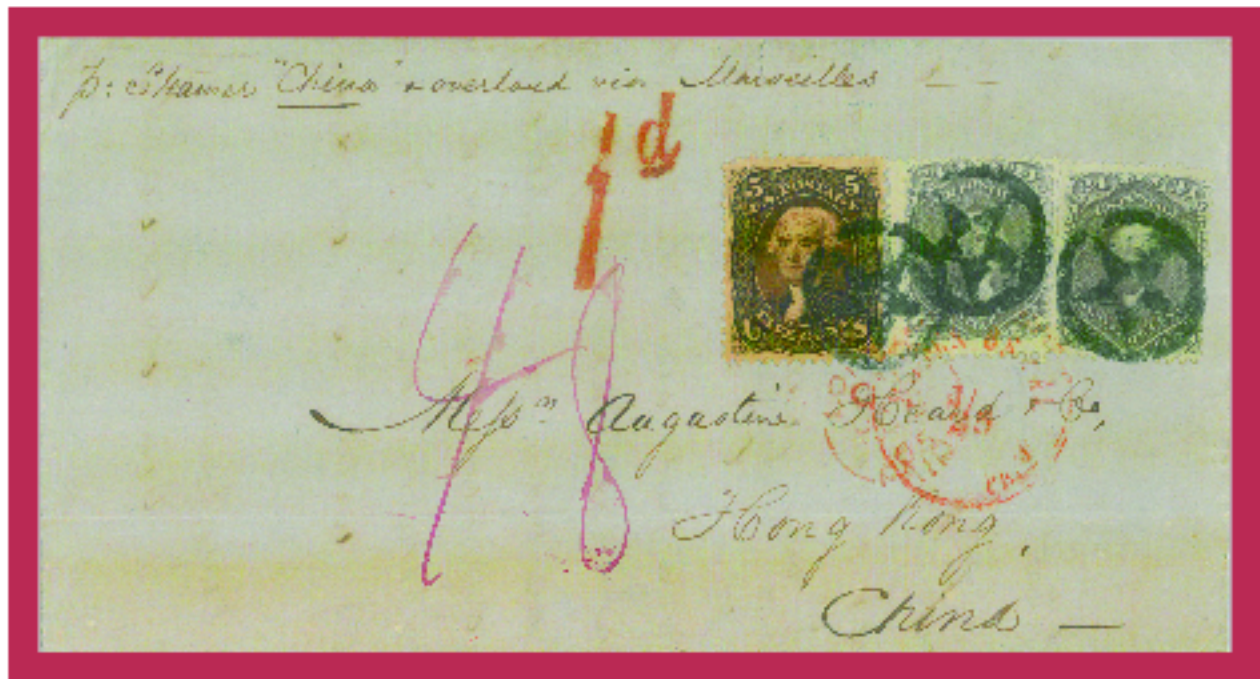 p: Steamer "China" & overland via Marseilles — —
1d
5 5
48
Mess<sup>rs</sup> Augustine Heard & Co,
Hong Kong,
China —